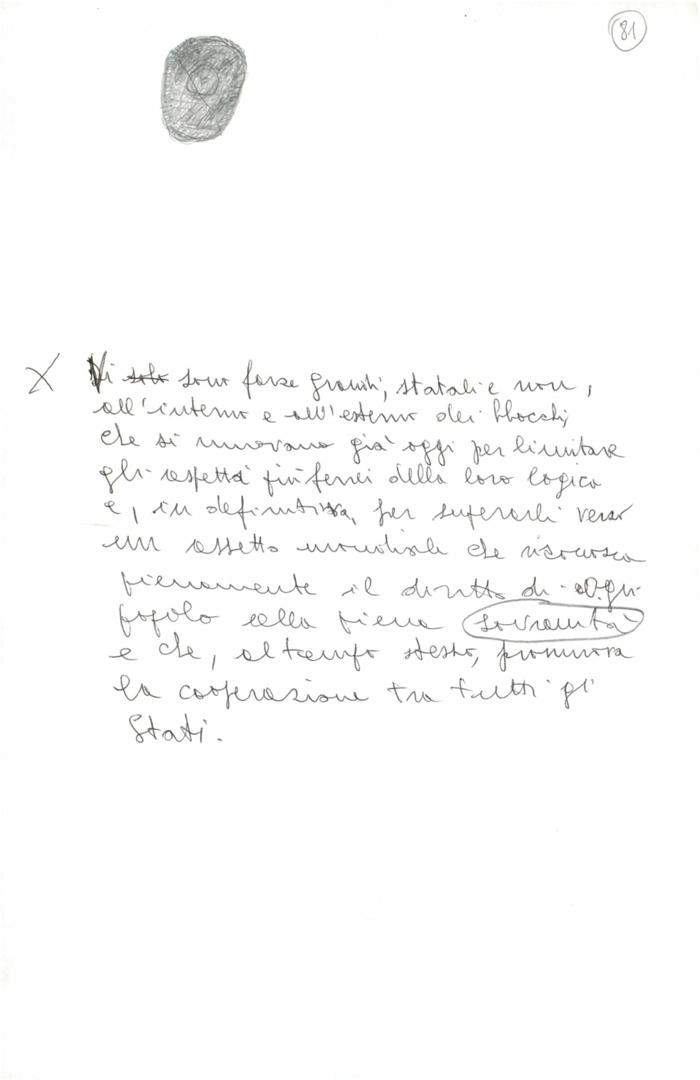 81
X Vi solo sono forze grandi, statali e non,
all'interno e all'esterno dei blocchi,
che si muovono già oggi per limitare
gli aspetti più ferrei della loro logica
e, in definitiva, per superarli verso
un assetto mondiale che riconosca
pienamente il diritto di ogni
popolo alla piena sovranità
e che, al tempo stesso, promuova
la cooperazione tra tutti gli
Stati.